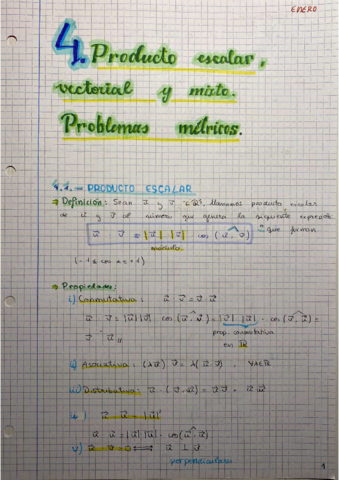 ENERO
4. Producto escalar,
vectorial y mixto.
Problemas métricos.
4.1.- PRODUCTO ESCALAR
Definición: Sean u⃗ y v⃗ ∈ ℝ³, llamamos producto escalar
de u⃗ y v⃗ al número que genera la siguiente expresión
u⃗ · v⃗ = |u⃗| · |v⃗| · cos (u⃗, v⃗) que forman
módulo
(-1 ≤ cos α ≤ +1)
Propiedades:
i) Conmutativa: u⃗ · v⃗ = v⃗ · u⃗
u⃗ · v⃗ = |u⃗| |v⃗| · cos (u⃗, v⃗) = |v⃗| · |u⃗| · cos (v⃗, u⃗) =
prop. conmutativa
v⃗ · u⃗
en ℝ
ii) Asociativa: (λu⃗) · v⃗ = λ(u⃗ · v⃗)
iii) Distributiva:
u⃗ · u⃗ = |u⃗|²
u⃗ · u⃗ = |u⃗| |u⃗| · cos(u⃗, u⃗)
v) u⃗ · v⃗ = 0 ⟺ u⃗ ⊥ v⃗
perpendiculares
1